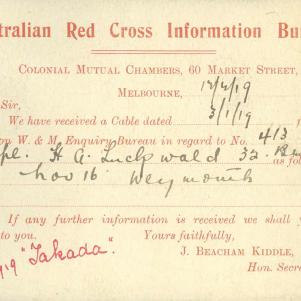 stralian Red Cross Information Bu
COLONIAL MUTUAL CHAMBERS, 60 MARKET STREET,
MELBOURNE, 17/4/19
Sir,
We have received a Cable dated 3/1/19
on W. & M. Enquiry Bureau in regard to No. 413
pl. H A Luckwald 32. as fo
Nov 16 Weymouth
If any further information is received we shall
to you. Yours faithfully,
J. BEACHAM KIDDLE,
/19 "Takada". Hon. Secre